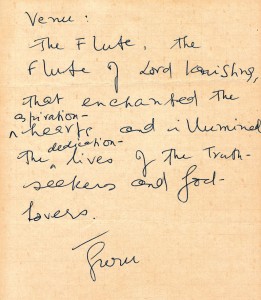 Venu:
The Flute. The
Flute of Lord Krishna,
that enchanted the
aspiration-
hearts and illumined
dedication-
the lives of the Truth-
seekers and God-
lovers.